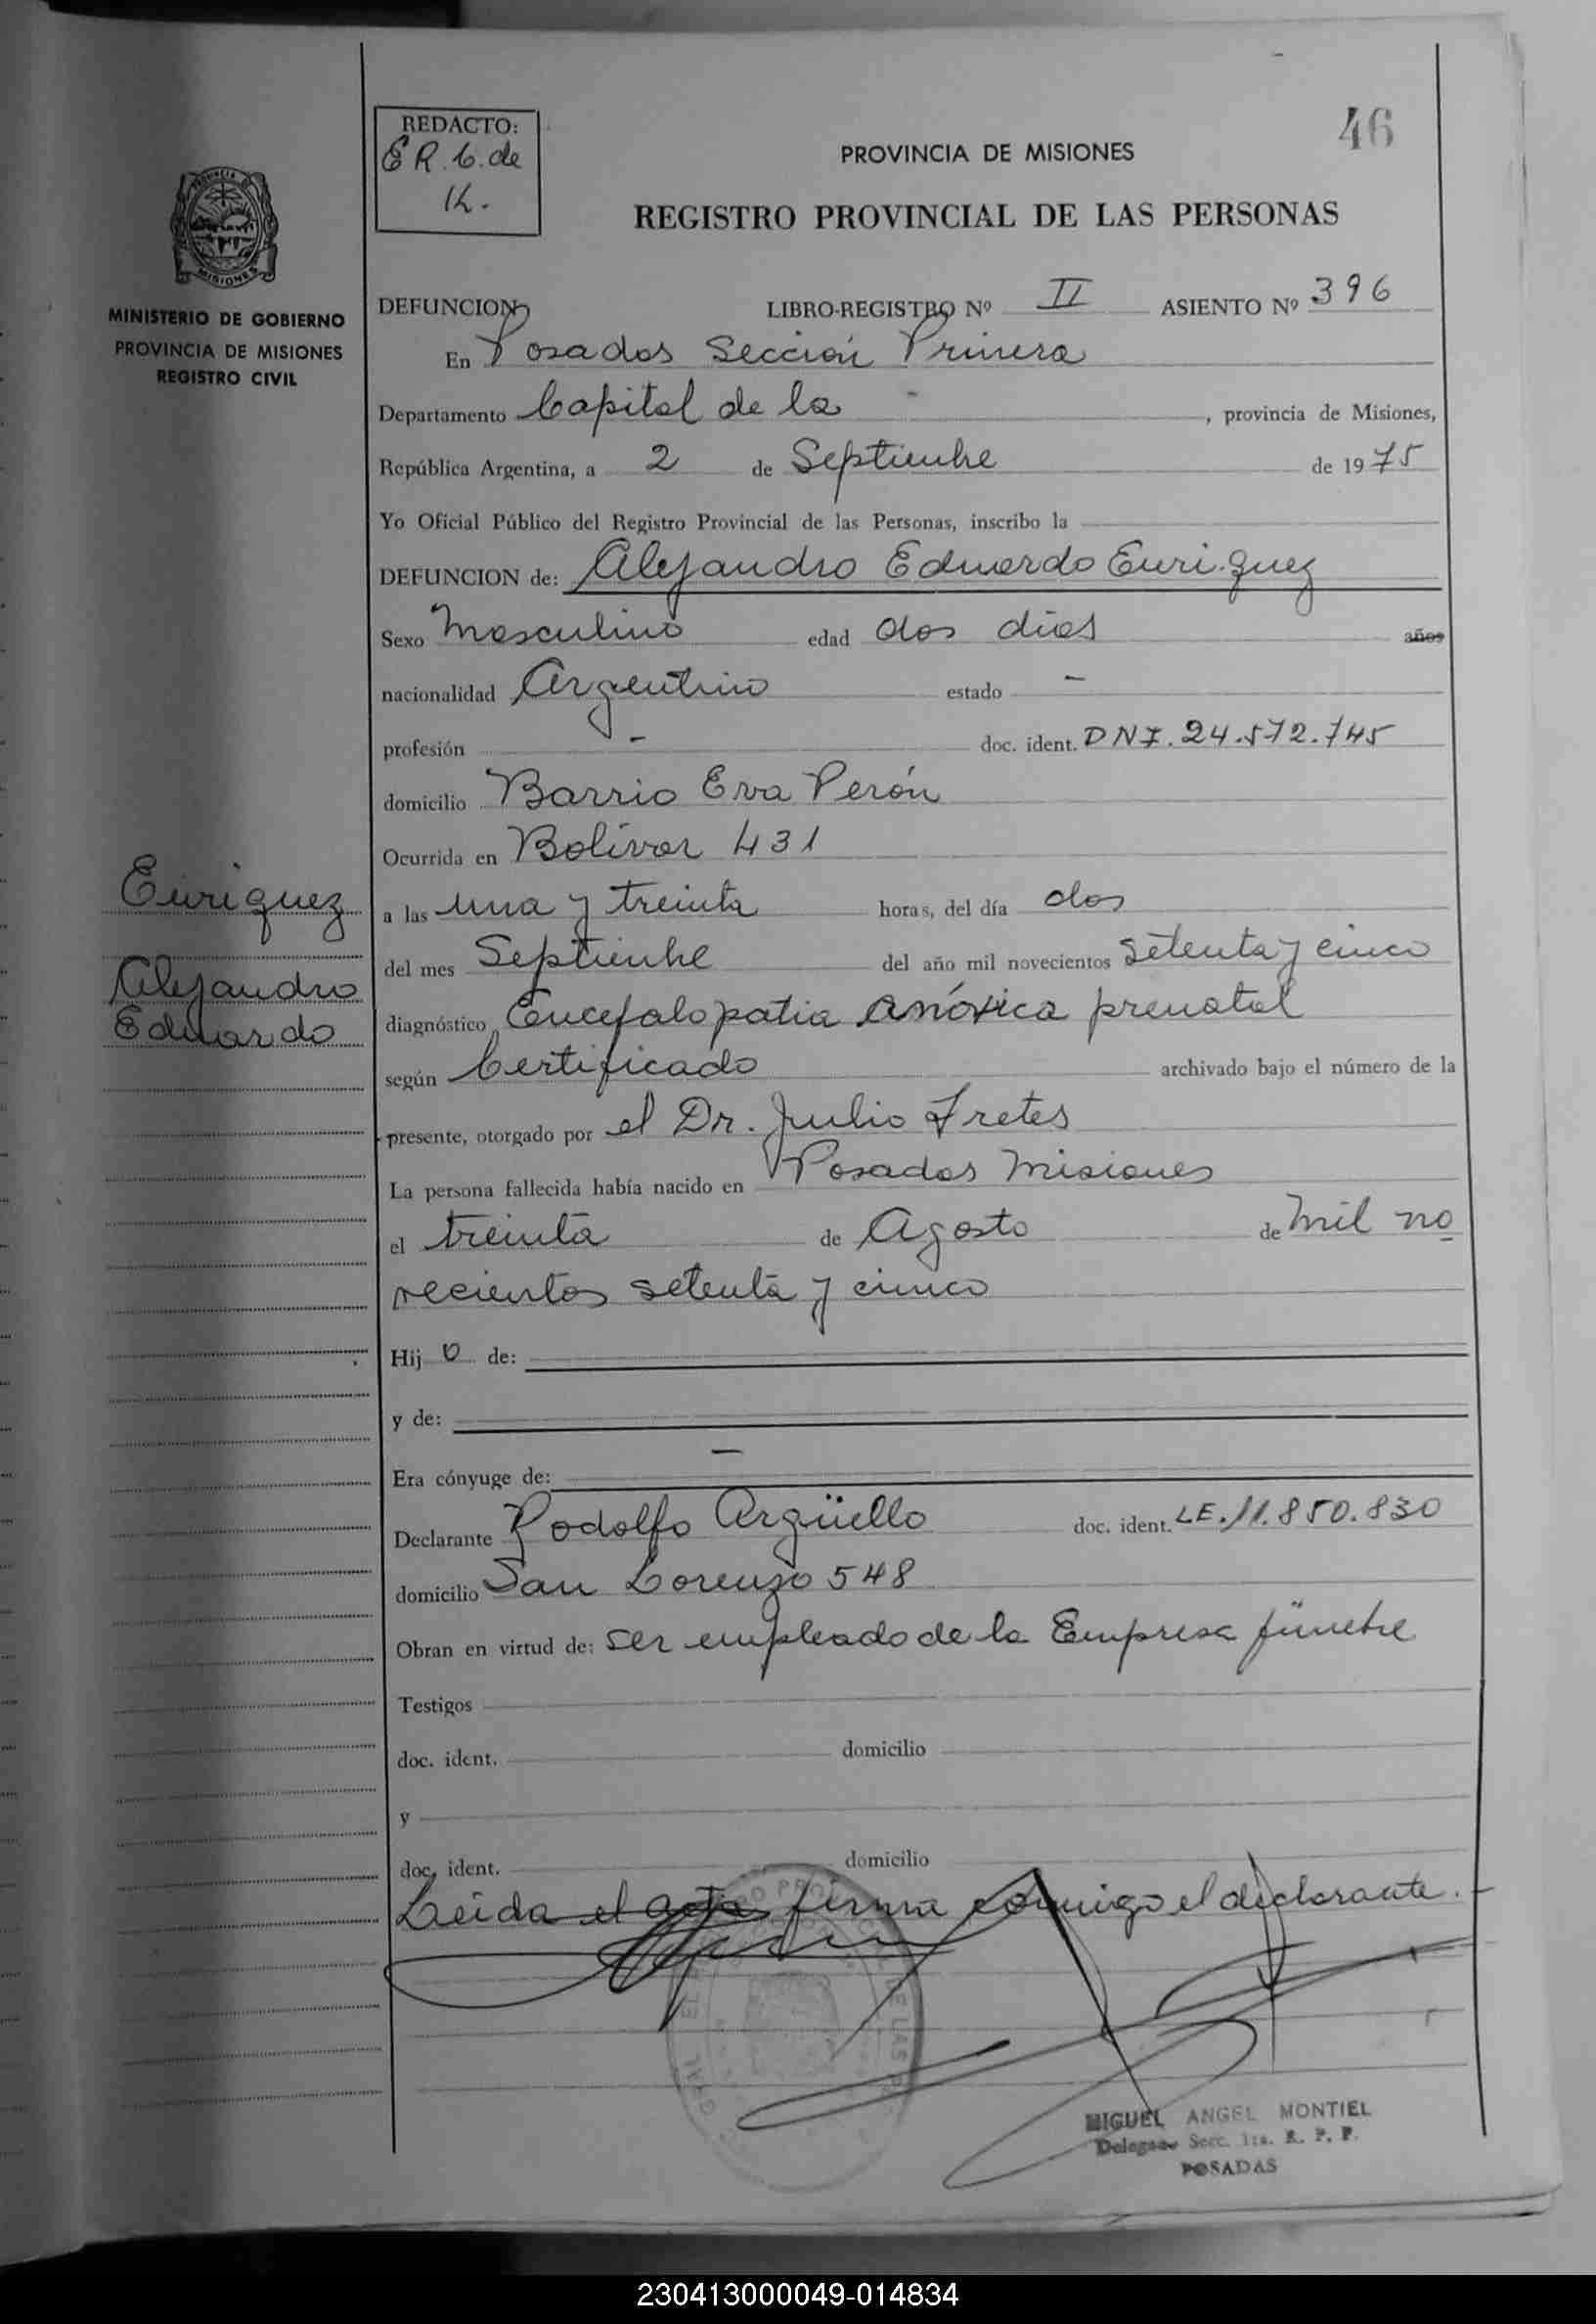 46
REDACTO:
E R. C. de
K.
PROVINCIA DE MISIONES
REGISTRO PROVINCIAL DE LAS PERSONAS
MINISTERIO DE GOBIERNO
PROVINCIA DE MISIONES
REGISTRO CIVIL
DEFUNCION LIBRO-REGISTRO Nº II ASIENTO Nº 396
En Posadas Sección Primera
Departamento Capital de la , provincia de Misiones,
República Argentina, a 2 de Septiembre de 1975
Yo Oficial Público del Registro Provincial de las Personas, inscribo la
DEFUNCION de: Alejandro Eduardo Enriquez
Sexo Masculino edad dos días años
nacionalidad Argentino estado -
profesión - doc. ident. DNI. 24.572.745
domicilio Barrio Eva Perón
Ocurrida en Bolívar 431
Enriquez
Alejandro
Eduardo
a las una y treinta horas, del día dos
del mes Septiembre del año mil novecientos setenta y cinco
diagnóstico Encefalopatia anóxica prenatal
según Certificado archivado bajo el número de la
presente, otorgado por el Dr. Julio Fretes
La persona fallecida había nacido en Posadas Misiones
el treinta de Agosto de mil no
vecientos setenta y cinco
Hijo de:
y de:
Era cónyuge de: -
Declarante Rodolfo Argüello doc. ident. LE. 11.850.830
domicilio San Lorenzo 548
Obran en virtud de: ser empleado de la Empresa fúnebre
Testigos
doc. ident. domicilio
y
doc. ident. domicilio
Leída el acta firma conmigo el declarante.-
MIGUEL ANGEL MONTIEL
Delegado Secc. 1ra. R. P. P.
POSADAS
230413000049-014834